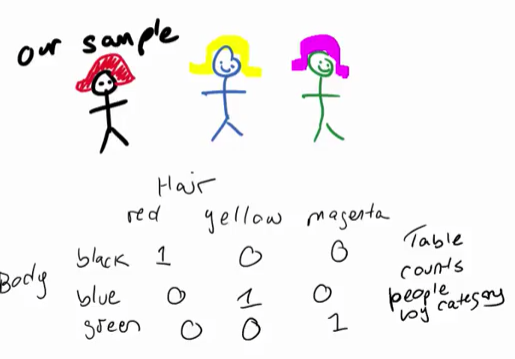 our sample
Hair
red yellow magenta
Body
black 1 0 0
blue 0 1 0
green 0 0 1
Table
counts
people
by category